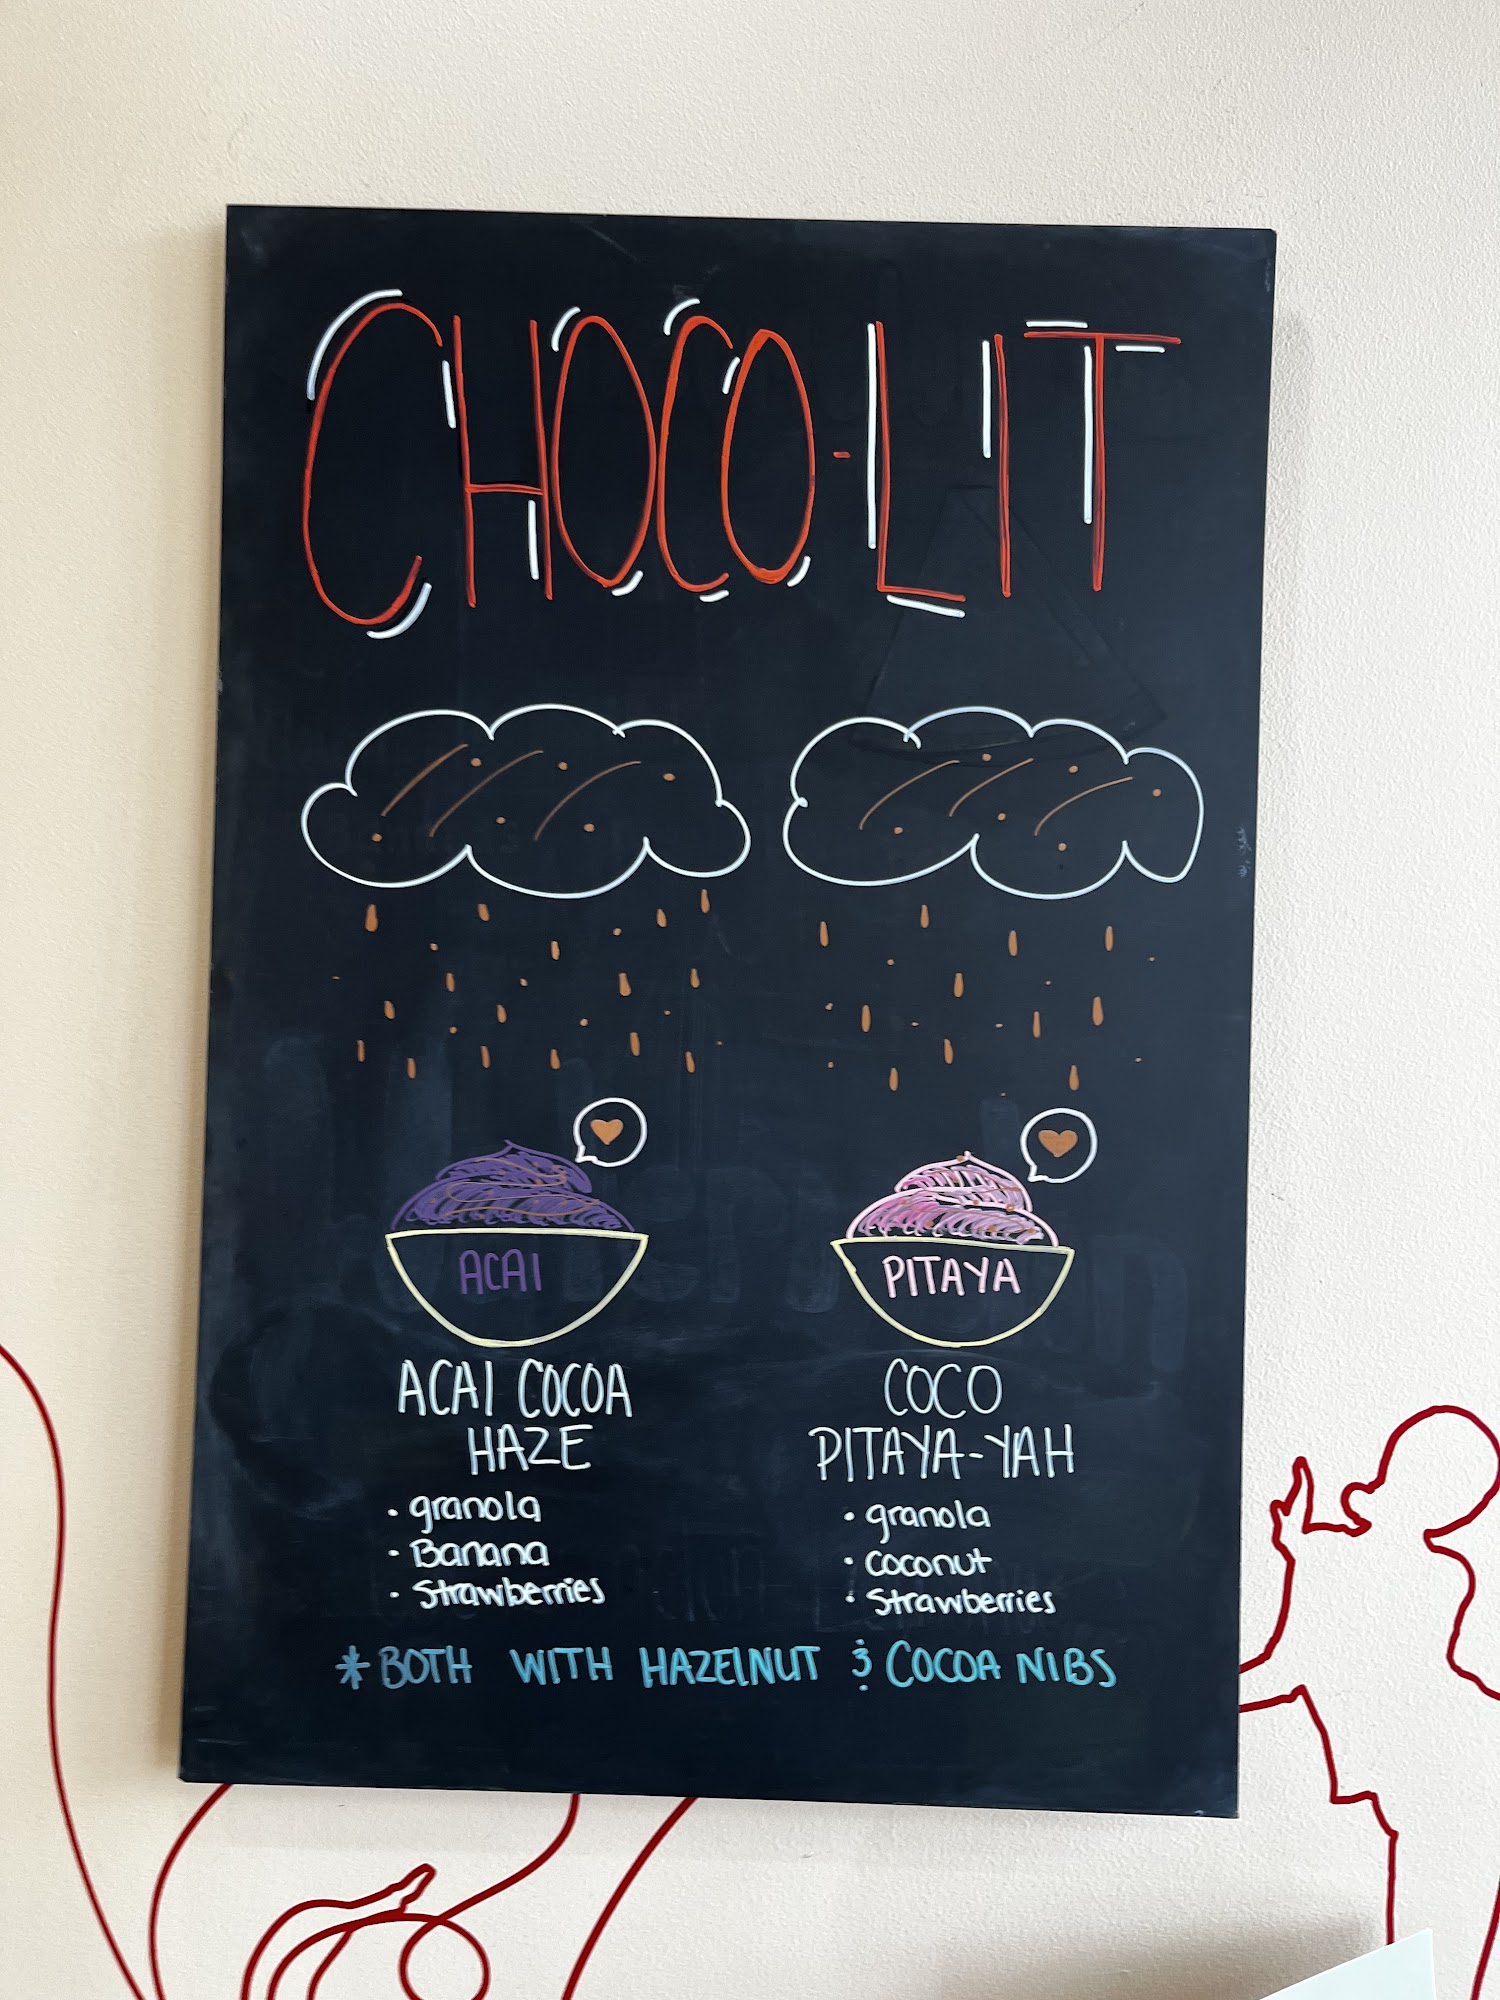 CHOCO-LIT
ACAI
ACAI COCOA
HAZE
• granola
• Banana
• Strawberries
PITAYA
COCO
PITAYA-YAH
• granola
• coconut
• Strawberries
* BOTH WITH HAZELNUT & COCOA NIBS